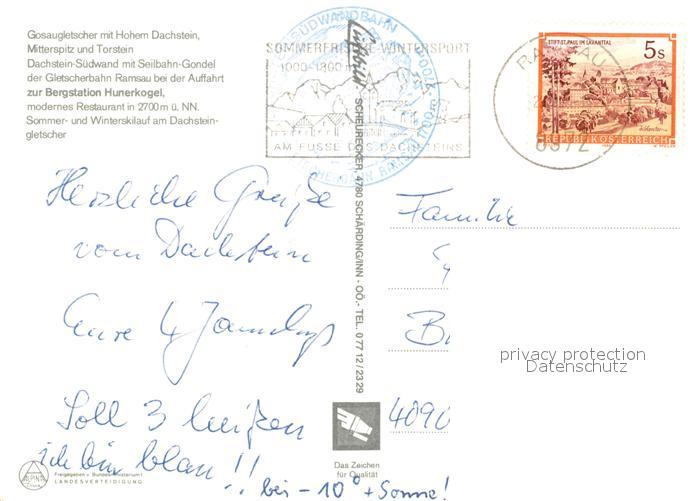 Gosaugletscher mit Hohem Dachstein,
Mitterspitz und Torstein
Dachstein-Südwand mit Seilbahn-Gondel
der Gletscherbahn Ramsau bei der Auffahrt
zur Bergstation Hunerkogel,
modernes Restaurant in 2700 m ü. NN.
Sommer- und Winterskilauf am Dachstein-
gletscher
SÜDWANDBAHN
1700m
SOMMERFRISCHE-WINTERSPORT
1000-1300 m
AM FUSSE DES DACHSTEINS
RAMSAU
8972
STIFT ST. PAUL IM LAVANTTAL
5 s
REPUBLIK ÖSTERREICH
SCHEURECKER, 4780 SCHÄRDING/INN - OÖ. - TEL. 0 77 12 / 23 29
Herzliche Grüße
vom Dachstein
Eure 4
Soll 3
ich bin blau!!
bei -10° + Sonne!
Familie
B
4090
privacy protection
Datenschutz
ALPINA
Freigegeben v. Bundesministerium f.
LANDESVERTEIDIGUNG
Das Zeichen
für Qualität